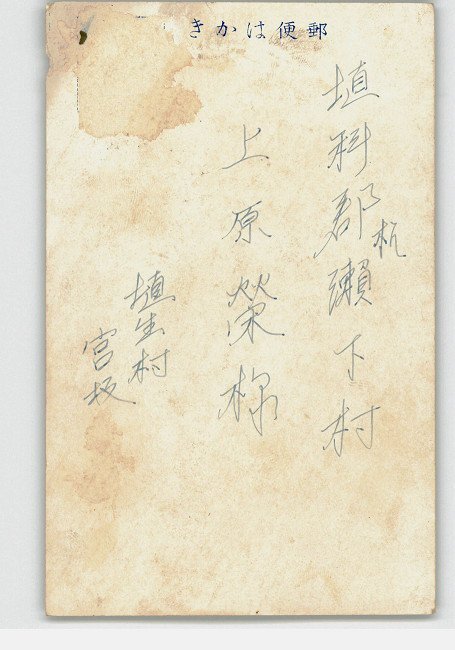 きかは便郵
埴科郡杭瀬下村
上原榮様
埴生村
宮坂